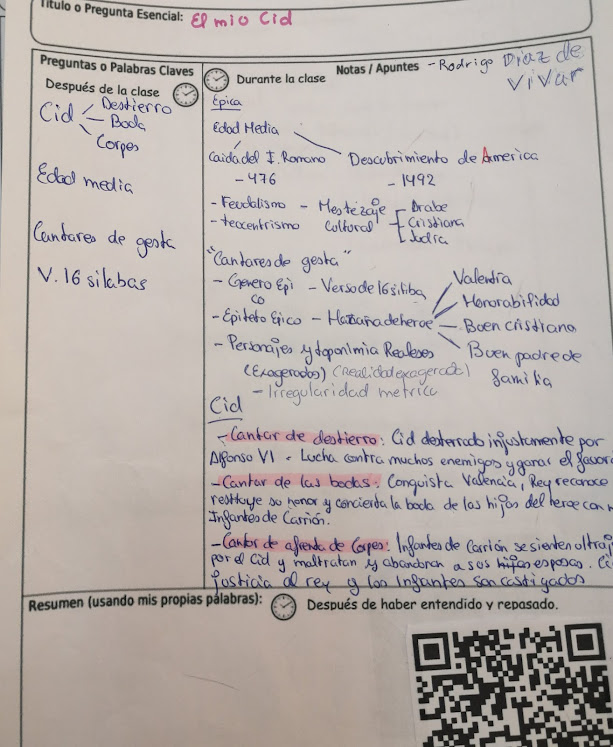 Título o Pregunta Esencial: El mio Cid
Preguntas o Palabras Claves
Después de la clase
Cid Destierro
Boda
Corpes
Edad media
Cantares de gesta
V. 16 silabas
Notas / Apuntes - Rodrigo Diaz de
Vivar
Durante la clase
Epica
Edad Media
Caida del I. Romano Descubrimiento de America
- 476 - 1492
- Feudalismo - Mestizaje Arabe
- teocentrismo Cultural Cristiana
Judia
"Cantares de gesta"
- Genero Epi - Verso de 16 siliba Valentia
co Honorabilidad
- Epiteto Epico - Hazaña de heroe Buen cristiano
- Personajes y toponimia Realeses Buen padre de
(Exagerados) (Realidad exagerado) familia
- Irregularidad metrica
Cid
- Cantar de destierro: Cid desterrado injustamente por
Alfonso VI. Lucha contra muchos enemigos y ganar el favor
- Cantar de las bodas: Conquista Valencia, Rey reconoce
restituye su honor y concierda la boda de las hijas del heroe con
Infantes de Carrión.
- Cantar de afrenta de Corpes: Infantes de Carrión se sienten
por el Cid y maltratan y abandonan a sus esposas.
justicia al rey y los Infantes son castigados
Resumen (usando mis propias palabras): Después de haber entendido y repasado.